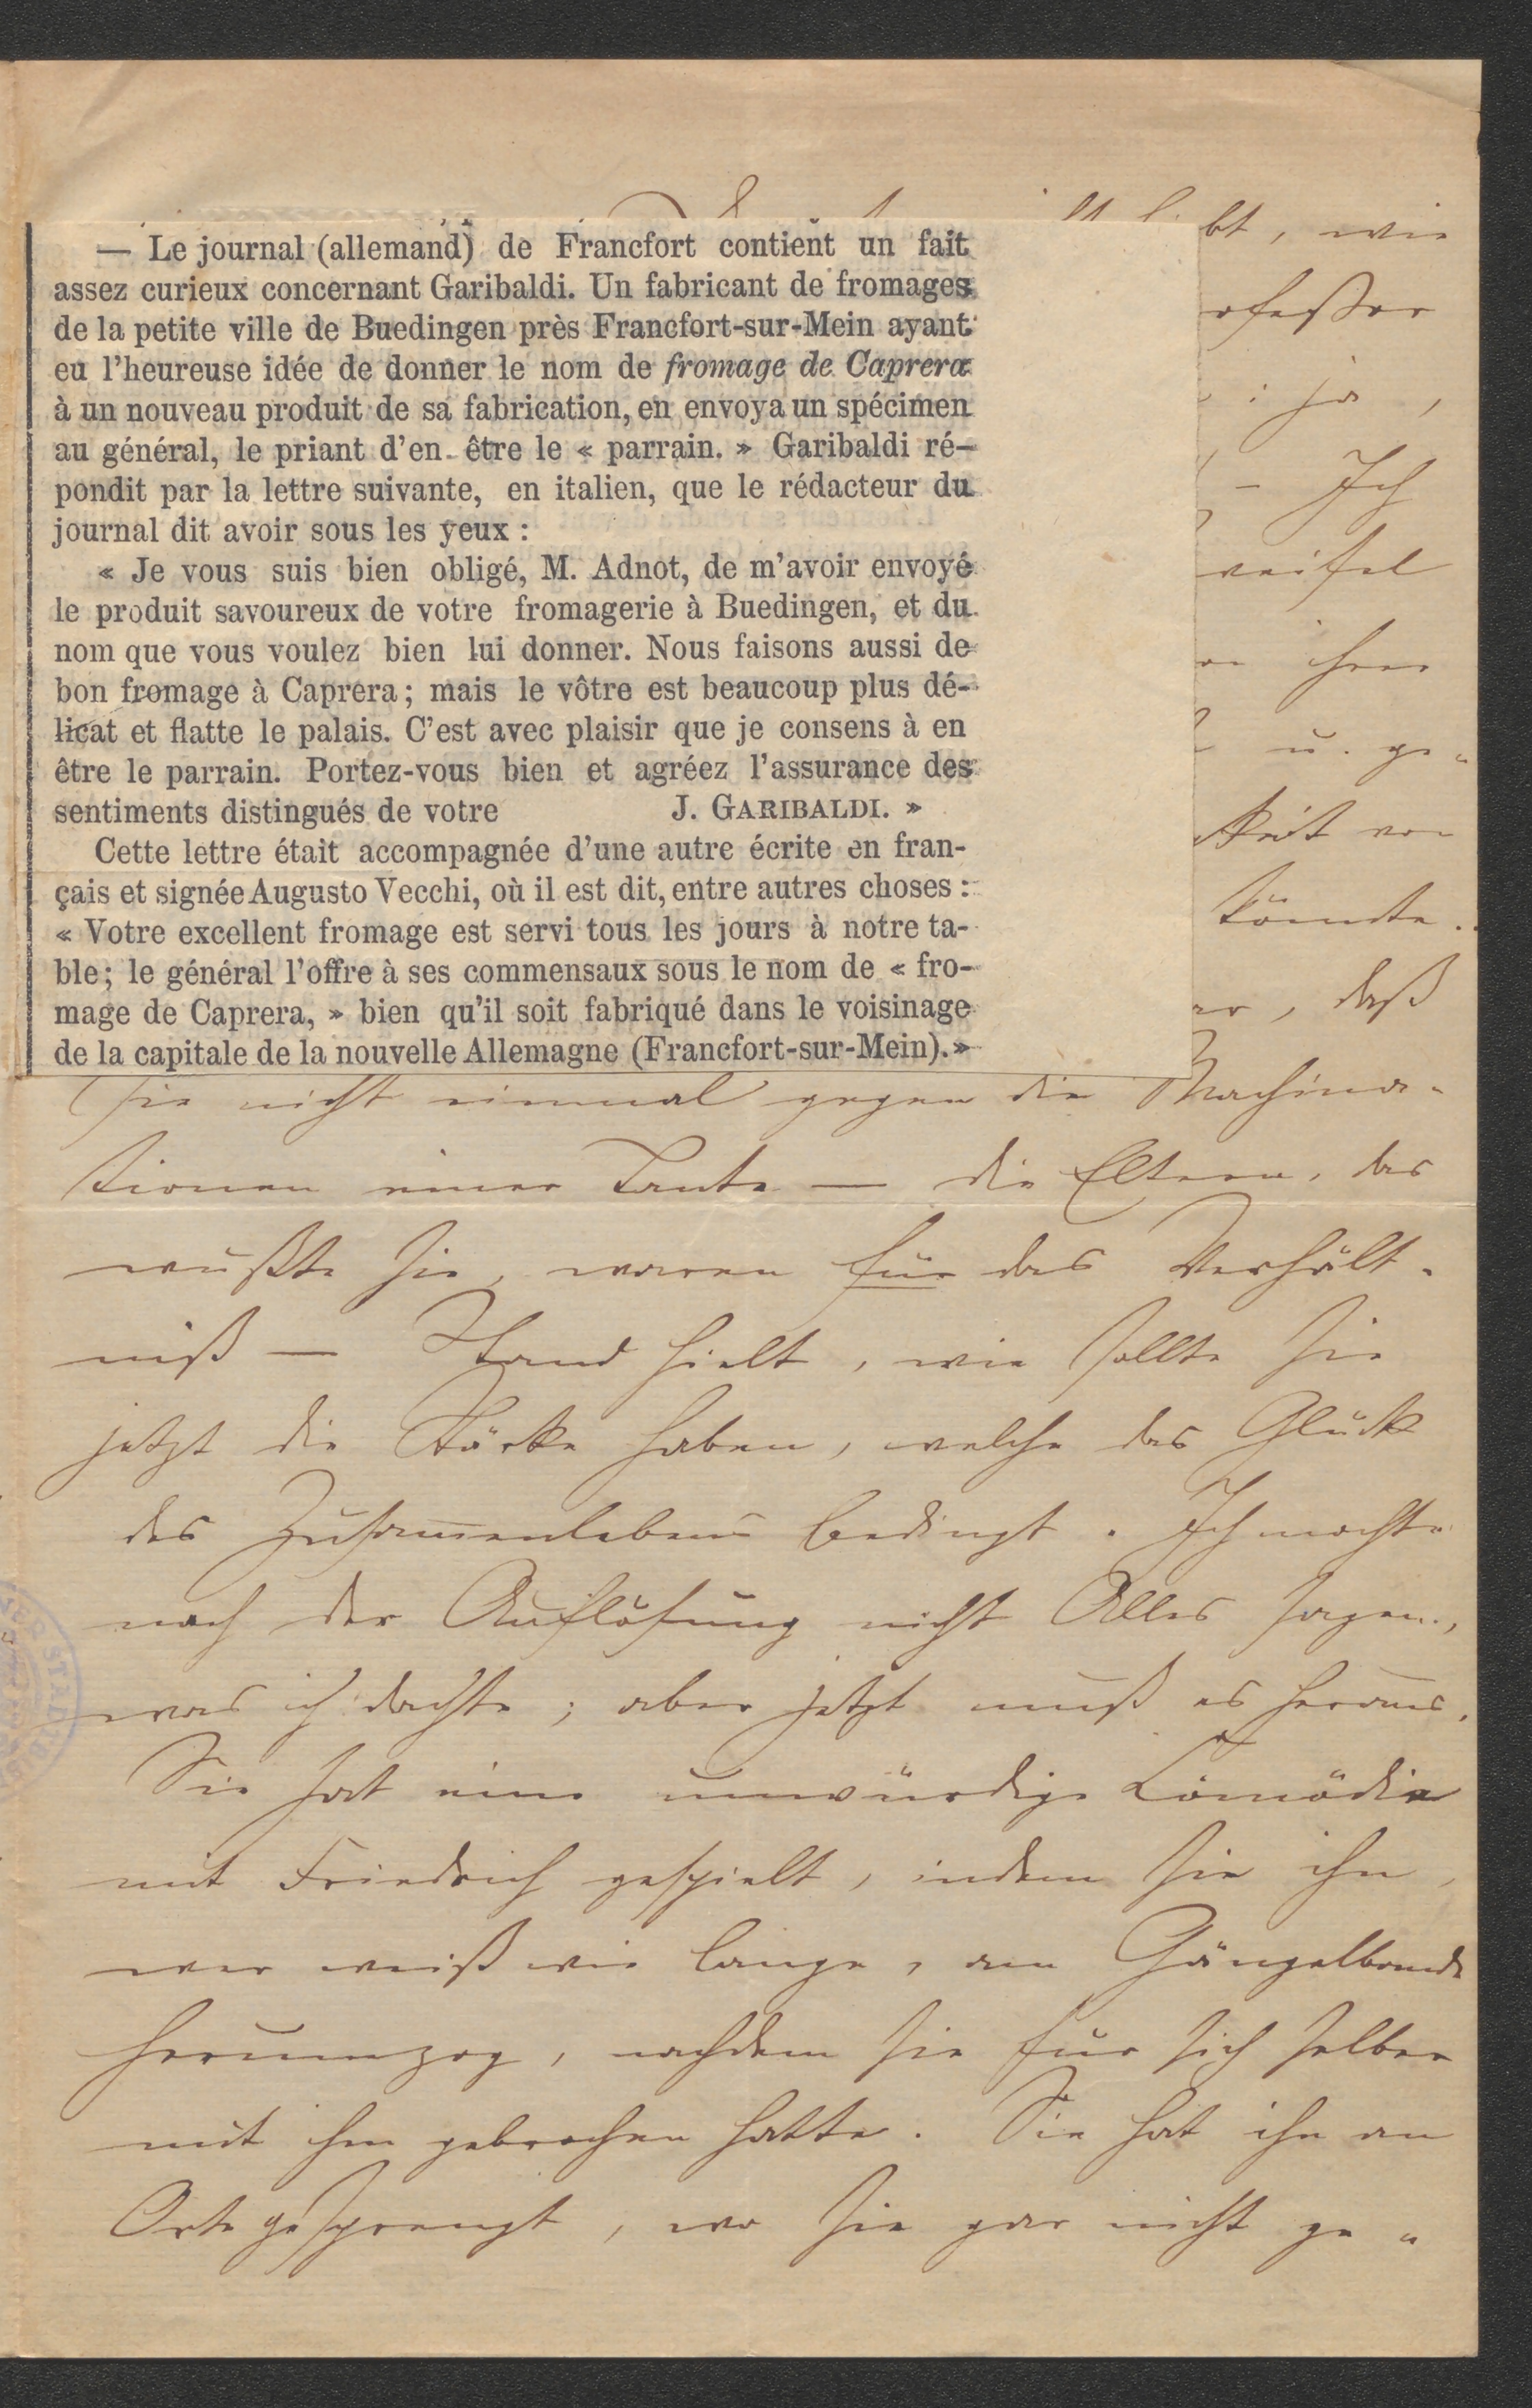 — Le journal (allemand) de Francfort contient un fait
assez curieux concernant Garibaldi. Un fabricant de fromages
de la petite ville de Buedingen près Francfort-sur-Mein ayant
eu l'heureuse idée de donner le nom de fromage de Caprera
à un nouveau produit de sa fabrication, en envoya un spécimen
au général, le priant d'en être le « parrain. » Garibaldi ré-
pondit par la lettre suivante, en italien, que le rédacteur du
journal dit avoir sous les yeux :
« Je vous suis bien obligé, M. Adnot, de m'avoir envoyé
le produit savoureux de votre fromagerie à Buedingen, et du
nom que vous voulez bien lui donner. Nous faisons aussi de
bon fromage à Caprera; mais le vôtre est beaucoup plus dé-
licat et flatte le palais. C'est avec plaisir que je consens à en
être le parrain. Portez-vous bien et agréez l'assurance des
sentiments distingués de votre J. GARIBALDI. »
Cette lettre était accompagnée d'une autre écrite en fran-
çais et signée Augusto Vecchi, où il est dit, entre autres choses :
« Votre excellent fromage est servi tous les jours à notre ta-
ble; le général l'offre à ses commensaux sous le nom de « fro-
mage de Caprera, » bien qu'il soit fabriqué dans le voisinage
de la capitale de la nouvelle Allemagne (Francfort-sur-Mein). »
bt, wie
ofeßor
: ja,
– Ich
weifel
ihrer
u. ge-
keit von
könnte.
er, daß
sie nicht einmal gegen die Machina-
tionen einer Tante — die Eltern, das
wußte sie, waren für das Verhält-
niß — Stand hielt, wie sollte sie
jetzt die Stärke haben, welche das Glück
des Zusam̅enlebens bedingt. Ich mochte
nach der Auflösung nicht Alles sagen,
was ich dachte; aber jetzt muß es heraus.
Sie hat eine unwürdige Komödie
mit Friedrich gespielt, indem sie ihn,
wer weiß wie lange, am Gängelbande
herumzog, nachdem sie für sich selber
mit ihm gebrochen hatte. Sie hat ihn an
Orte gesprengt, wo sie gar nicht ge-